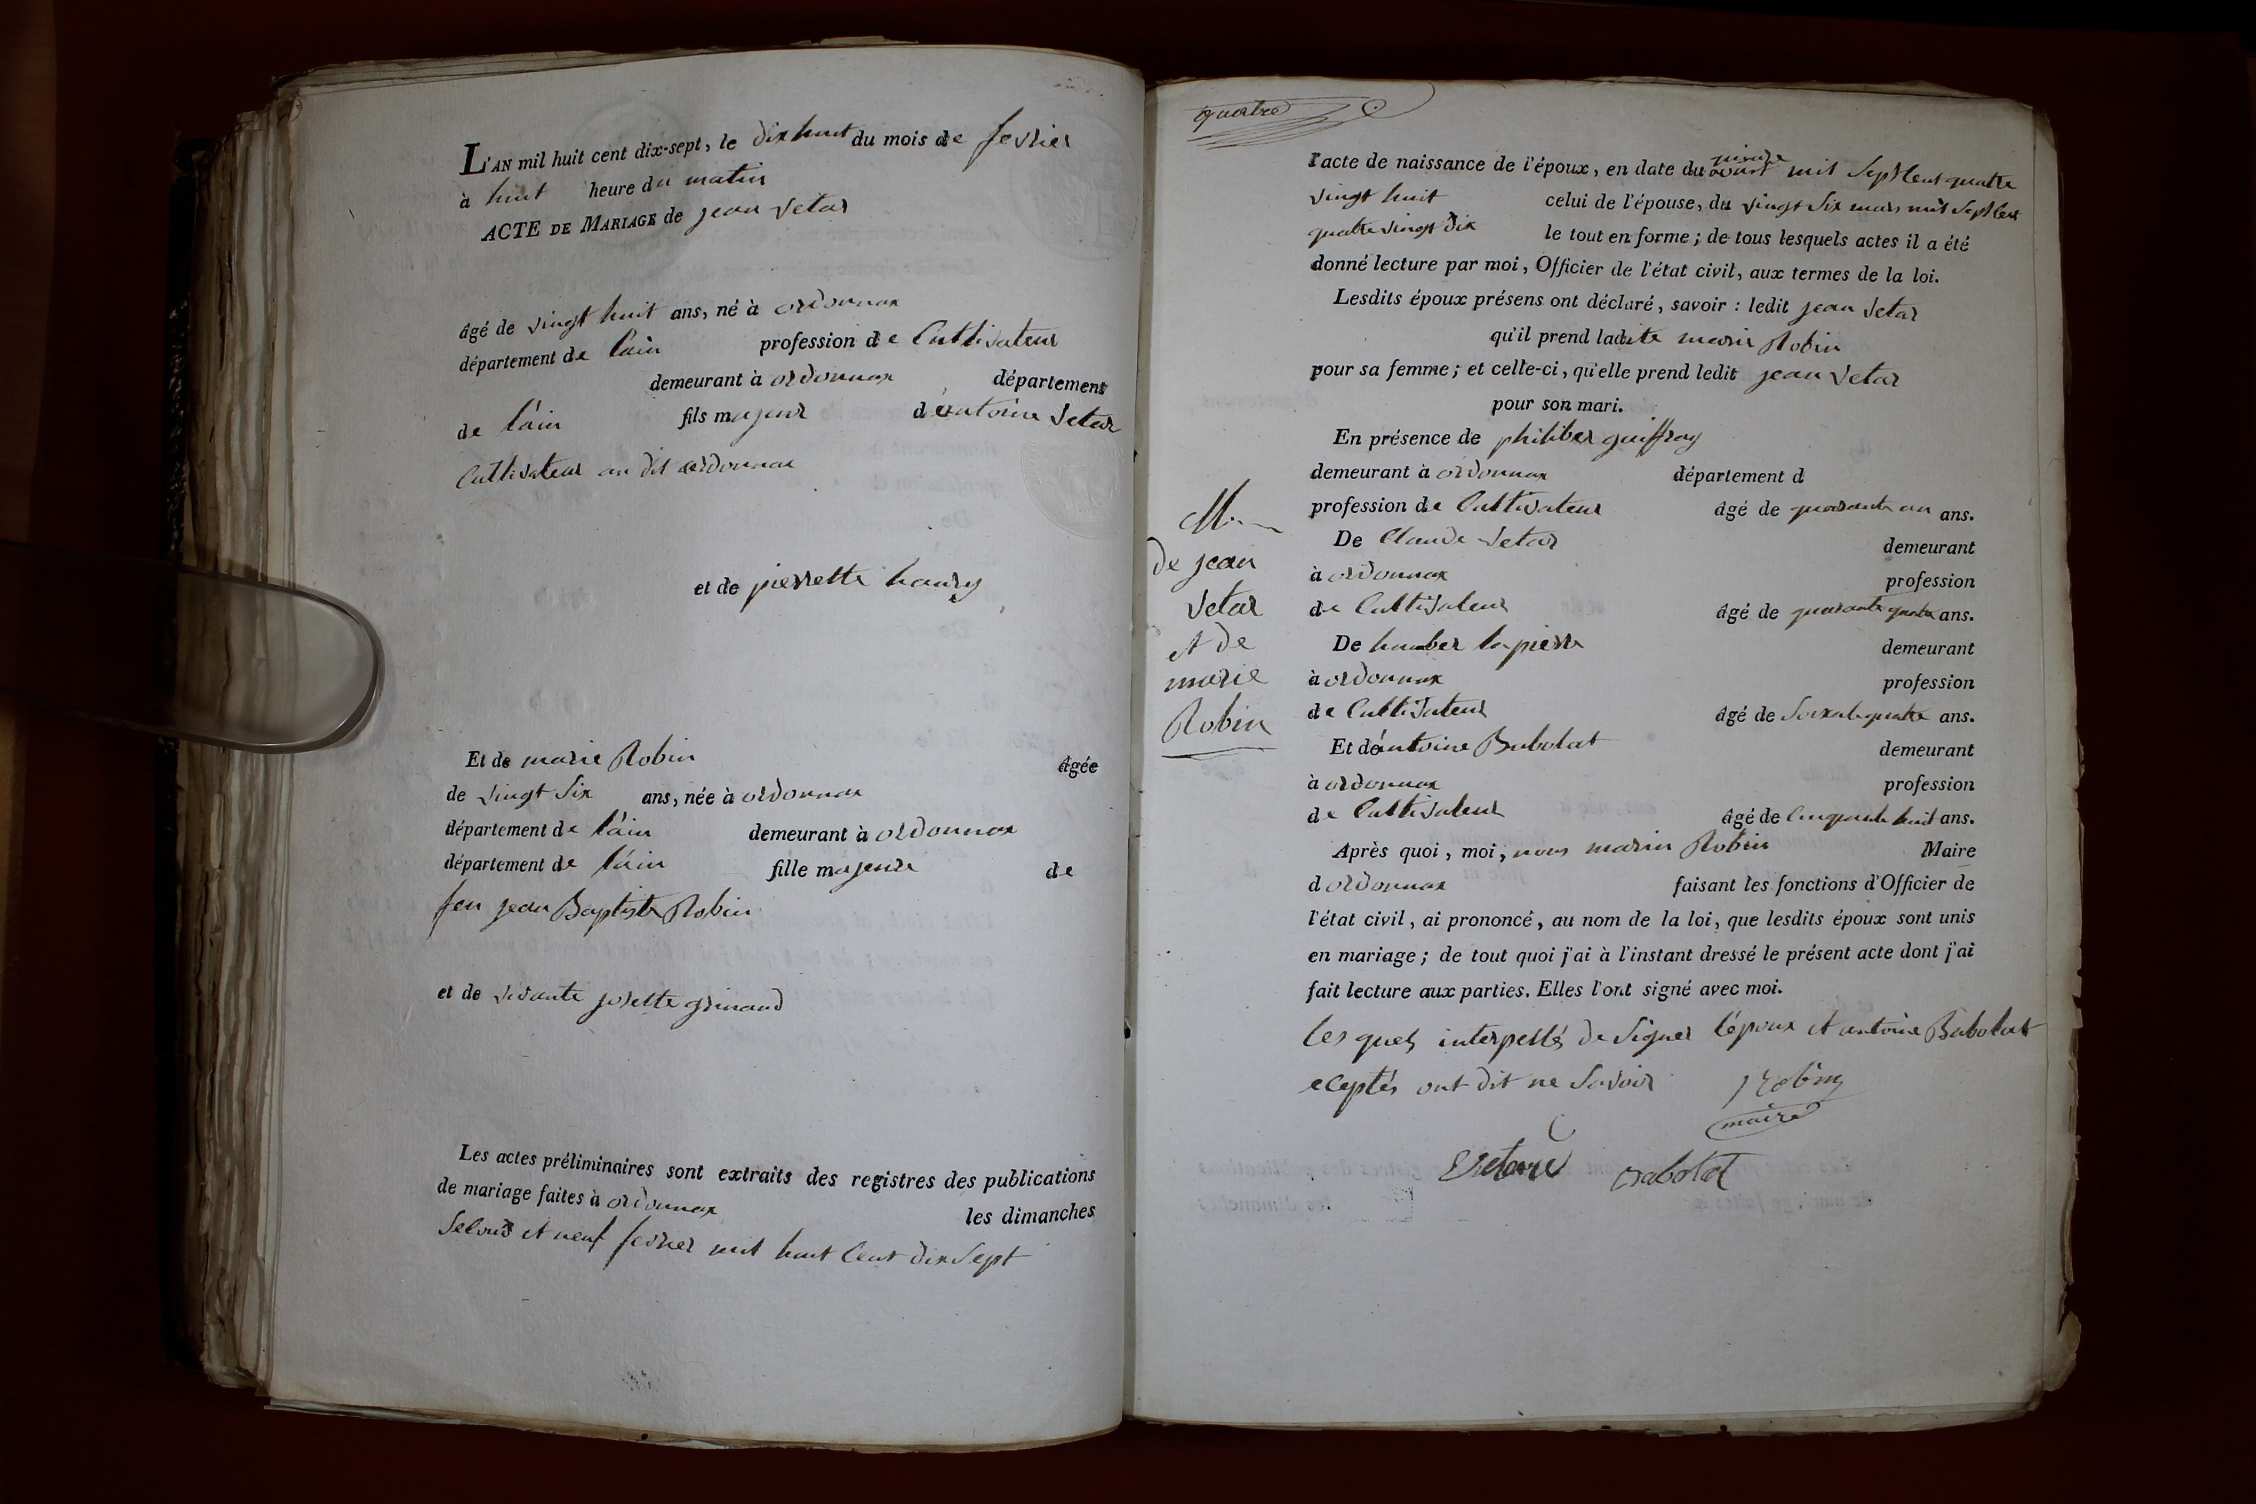 L'AN mil huit cent dix-sept, le dix huit du mois de fevrier
à huit heure du matin
ACTE DE MARIAGE de jean vetar
âgé de vingt huit ans, né à ordonnax
département de l'ain profession de Cultivateur
demeurant à ordonnax département
de l'ain fils majeur d'entoine vetar
Cultivateur au dit ordonnax
et de pierrette
Et de marie Robin âgée
de vingt six ans, née à ordonnax
département de l'ain demeurant à ordonnax
département de l'ain fille majeure de
feu jean Baptiste Robin
et de vivante josette grinand
Les actes préliminaires sont extraits des registres des publications
de mariage faites à ordonnax les dimanches
Second et neuf fevrier mil huit Cent dix Sept
quatre
l'acte de naissance de l'époux, en date du mil Sept Cent quatre
vingt huit celui de l'épouse, du vingt Six mars mil Sept Cent
quatre vingt dix le tout en forme ; de tous lesquels actes il a été
donné lecture par moi, Officier de l'état civil, aux termes de la loi.
Lesdits époux présens ont déclaré, savoir : ledit jean vetar
qu'il prend ladite marie Robin
pour sa femme ; et celle-ci, qu'elle prend ledit jean vetar
pour son mari.
En présence de philiber guiffray
demeurant à ordonnax département d
profession de Cultivateur âgé de quarante un ans.
De Claude vetar demeurant
à ordonnax profession
de Cultivateur âgé de quarante quatre ans.
De humber la pierre demeurant
à ordonnax profession
de Cultivateur âgé de Soixante quatre ans.
Et d'antoine Babolat demeurant
à ordonnax profession
de Cultivateur âgé de Cinquante huit ans.
Après quoi, moi, nous marin Robin Maire
d ordonnax faisant les fonctions d'Officier de
l'état civil, ai prononcé, au nom de la loi, que lesdits époux sont unis
en mariage ; de tout quoi j'ai à l'instant dressé le présent acte dont j'ai
fait lecture aux parties. Elles l'ont signé avec moi.
les quels interpellés de Signer l'époux et antoine Babolat
eceptés ont dit ne Savoir Robin
maire
Babolat
M.
de jean
vetar
et de
marie
Robin